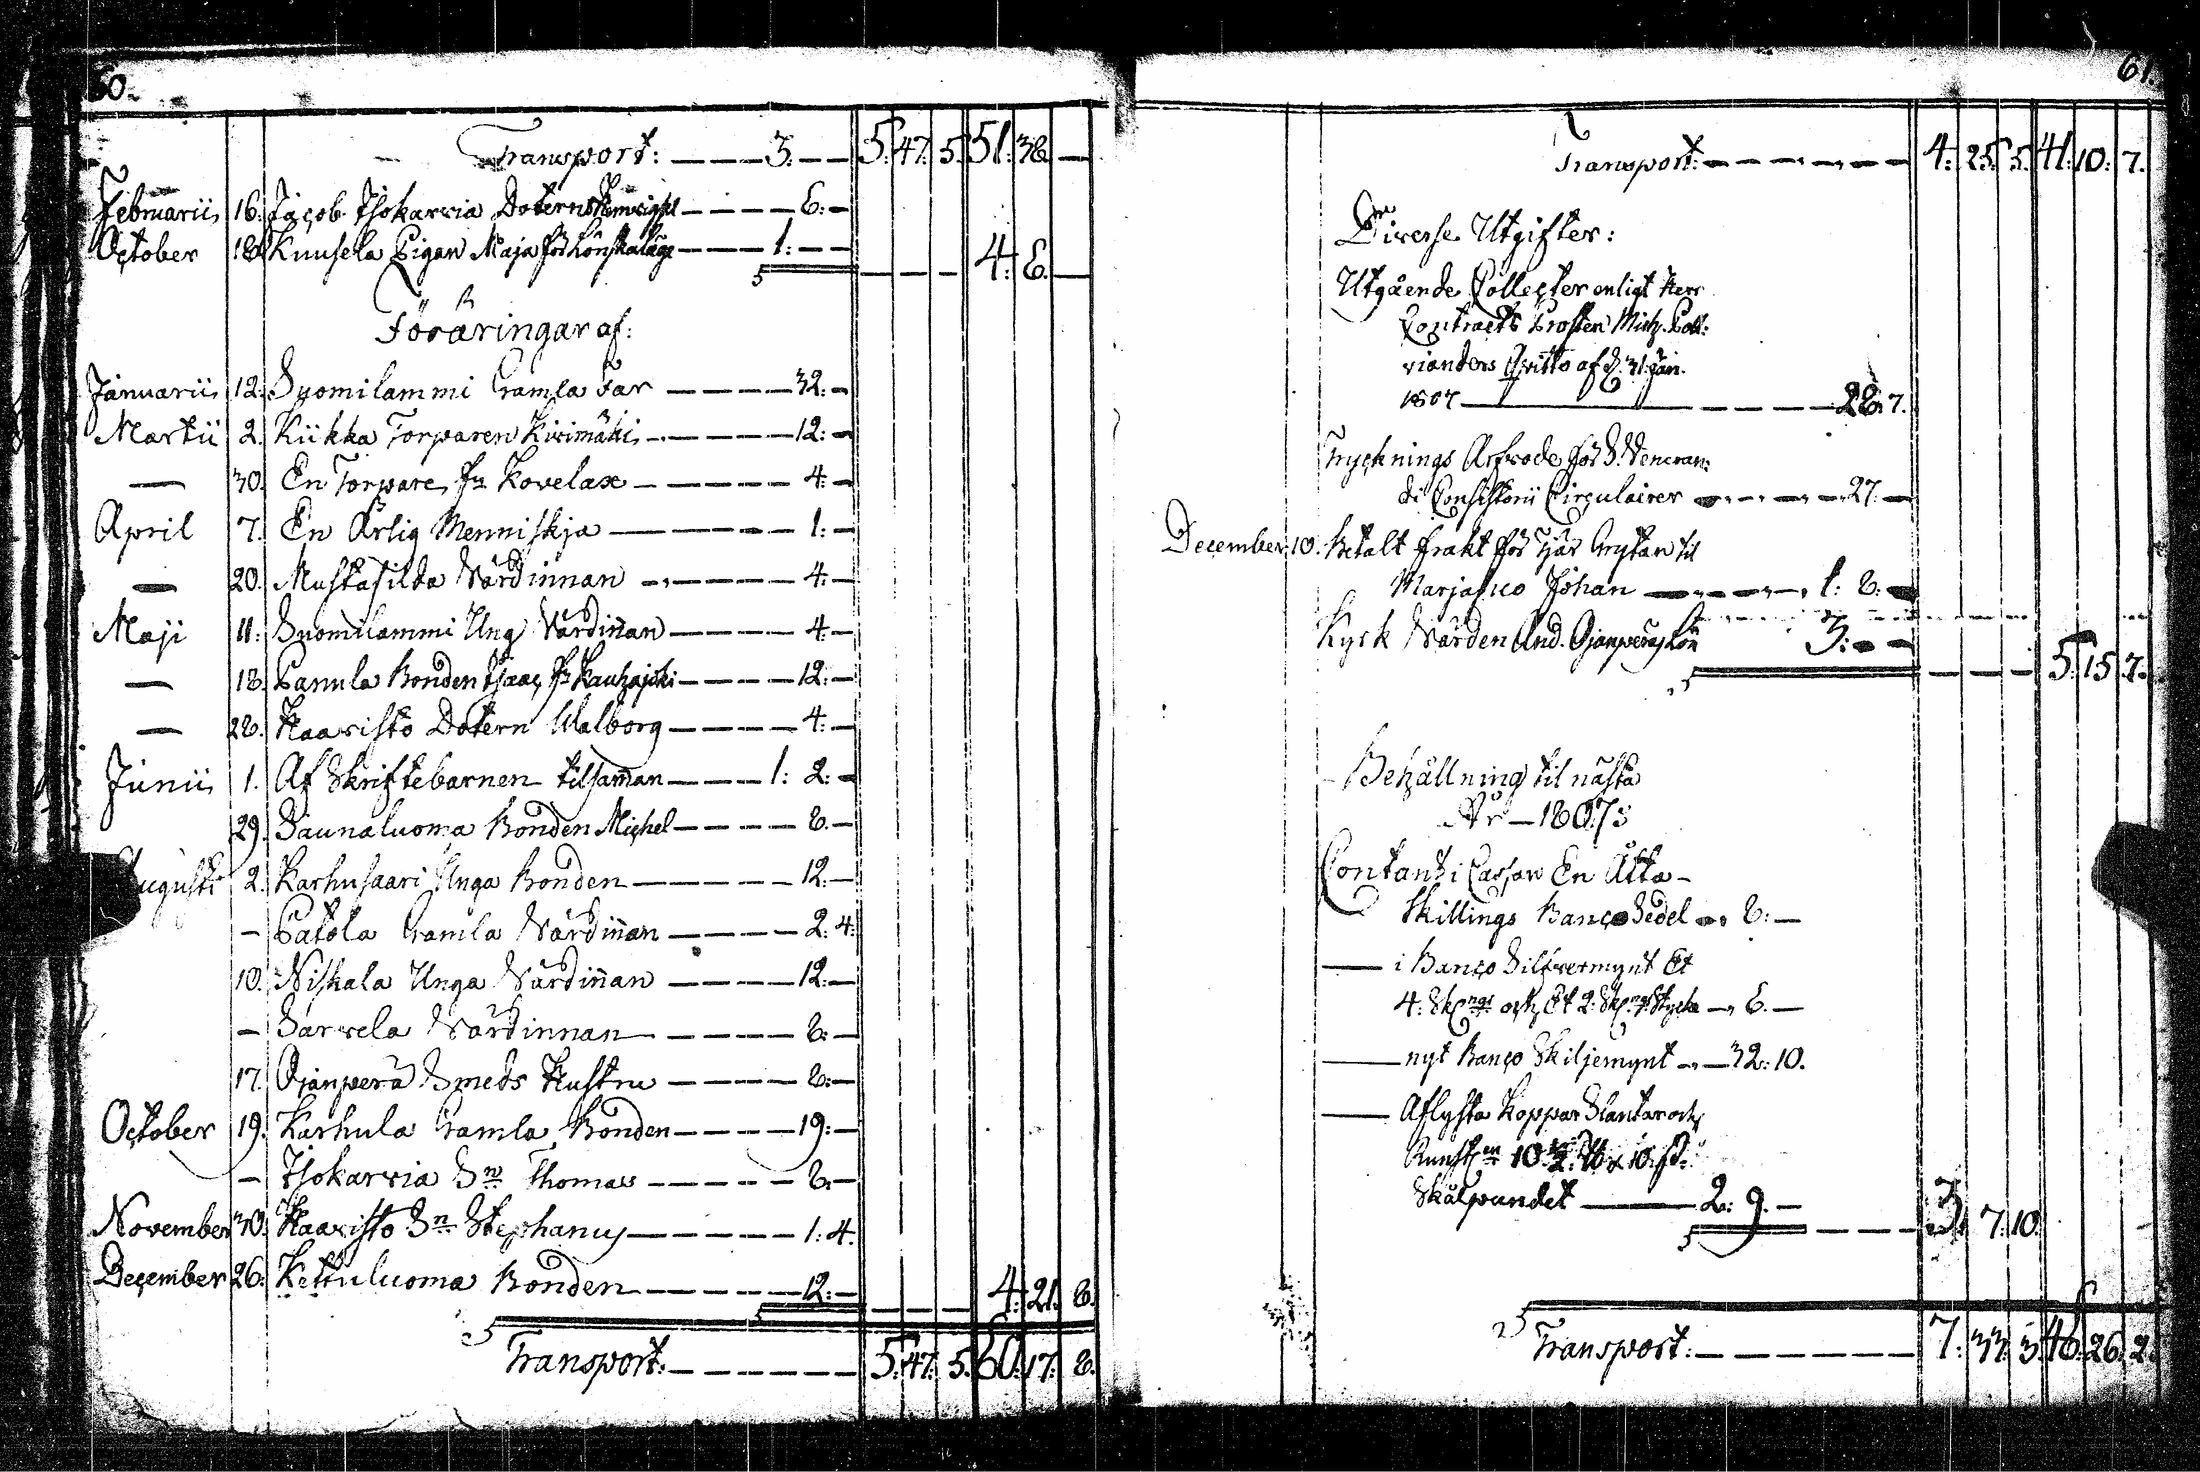 60.
Transport: — — — 3: — — 5: 47: 5. 51: 38. —
Februarii 16. Jacob Isokarvia Dotern — — — — 8: —
October 18. Knusela Pigan Maja för — — — 1: — — — — — 4: 8. —
Föräringar af:
Januarii 12: Suomilammi Gamla Far — — — — 32: —
Martii 2. Kiikka Torparen Kivimäki — — — — 12: —
— 30. En Torpare fr. Kovelax — — — — 4: —
April 7. En Ärlig Menniskja — — — — 1: —
— 20. Mustasilda Värdinnan — — — — 4: —
Maji 11: Suomilammi Ung Värdinnan — — — — 4: —
— 18. Panula Bonden Isaac fr. Kauhajoki — — — — 12: —
— 28. Haaristo Dotern Walborg — — — — 4: —
Junii 1. Af Skriftebarnen tilsamman — — — 1: 2: —
29. Saunaluoma Bonden Michel — — — — 8. —
Augusti 2. Karhusaari Unga Bonden — — — — 12: —
— Patola Gamla Värdinnan — — — — 2: 4:
10. Niskala Unga Värdinnan — — — — 12: —
— Sarvela Värdinnan — — — — 8: —
17. Ojanperä Smeds Hustru — — — — 8: —
October 19. Karhula Gamla Bonden — — — — 19: —
— Isokarvia Sn Thomas — — — — 8: —
November 30. Haaristo Sn Stephanus — — — — 1: 4.
December 26: Kettuluoma Bonden — — — — 12: — — — — 4: 21. 8.
Transport: — — — — — 5: 47: 5. 60: 17: 8.
61.
Transport: — — — — — 4: 25: 5. 41: 10: 7.
Diverse Utgifter:
Utgående Collecter enligt Herr
Contracts Prosten Mich.
rianders Qvitto af d. 31. Jan.
1807 — — — — 28. 7.
Trycknings Arfvode för S. Veneran:
di Consistorii Circulairer — — — 27: —
December 10. Betalt frakt för Tjär Grytan til
Marjasuo Johan — — — 1: 8: —
Kyrk Värden And. Ojanperä Lön 3: — — — — — 5: 15. 7.
Behållning til nästa
År — 1807:
Contant i Cassan En Åtta
Skillings Banco Sedel — 8: —
— i Banco Silfvermynt Et
4: Sk. och Et 2: Sk. Stycke — 6. —
— nyt Banco Skiljemynt — 32: 10.
— Aflysta Koppar Slantar och
10
Skålpundet — 2: 9. — — — — 3. 7: 10.
Transport: — — — — — 7: 33: 3. 46: 26. 2.